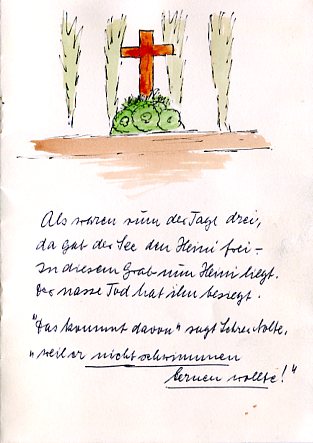 Als waren nun der Tage drei,
da gab der See den Heini frei –
In diesem Grab nun Heini liegt.
Der nasse Tod hat ihn besiegt.
"Das kommt davon" sagt Nolte,
"weil er nicht schwimmen
lernen wollte!"